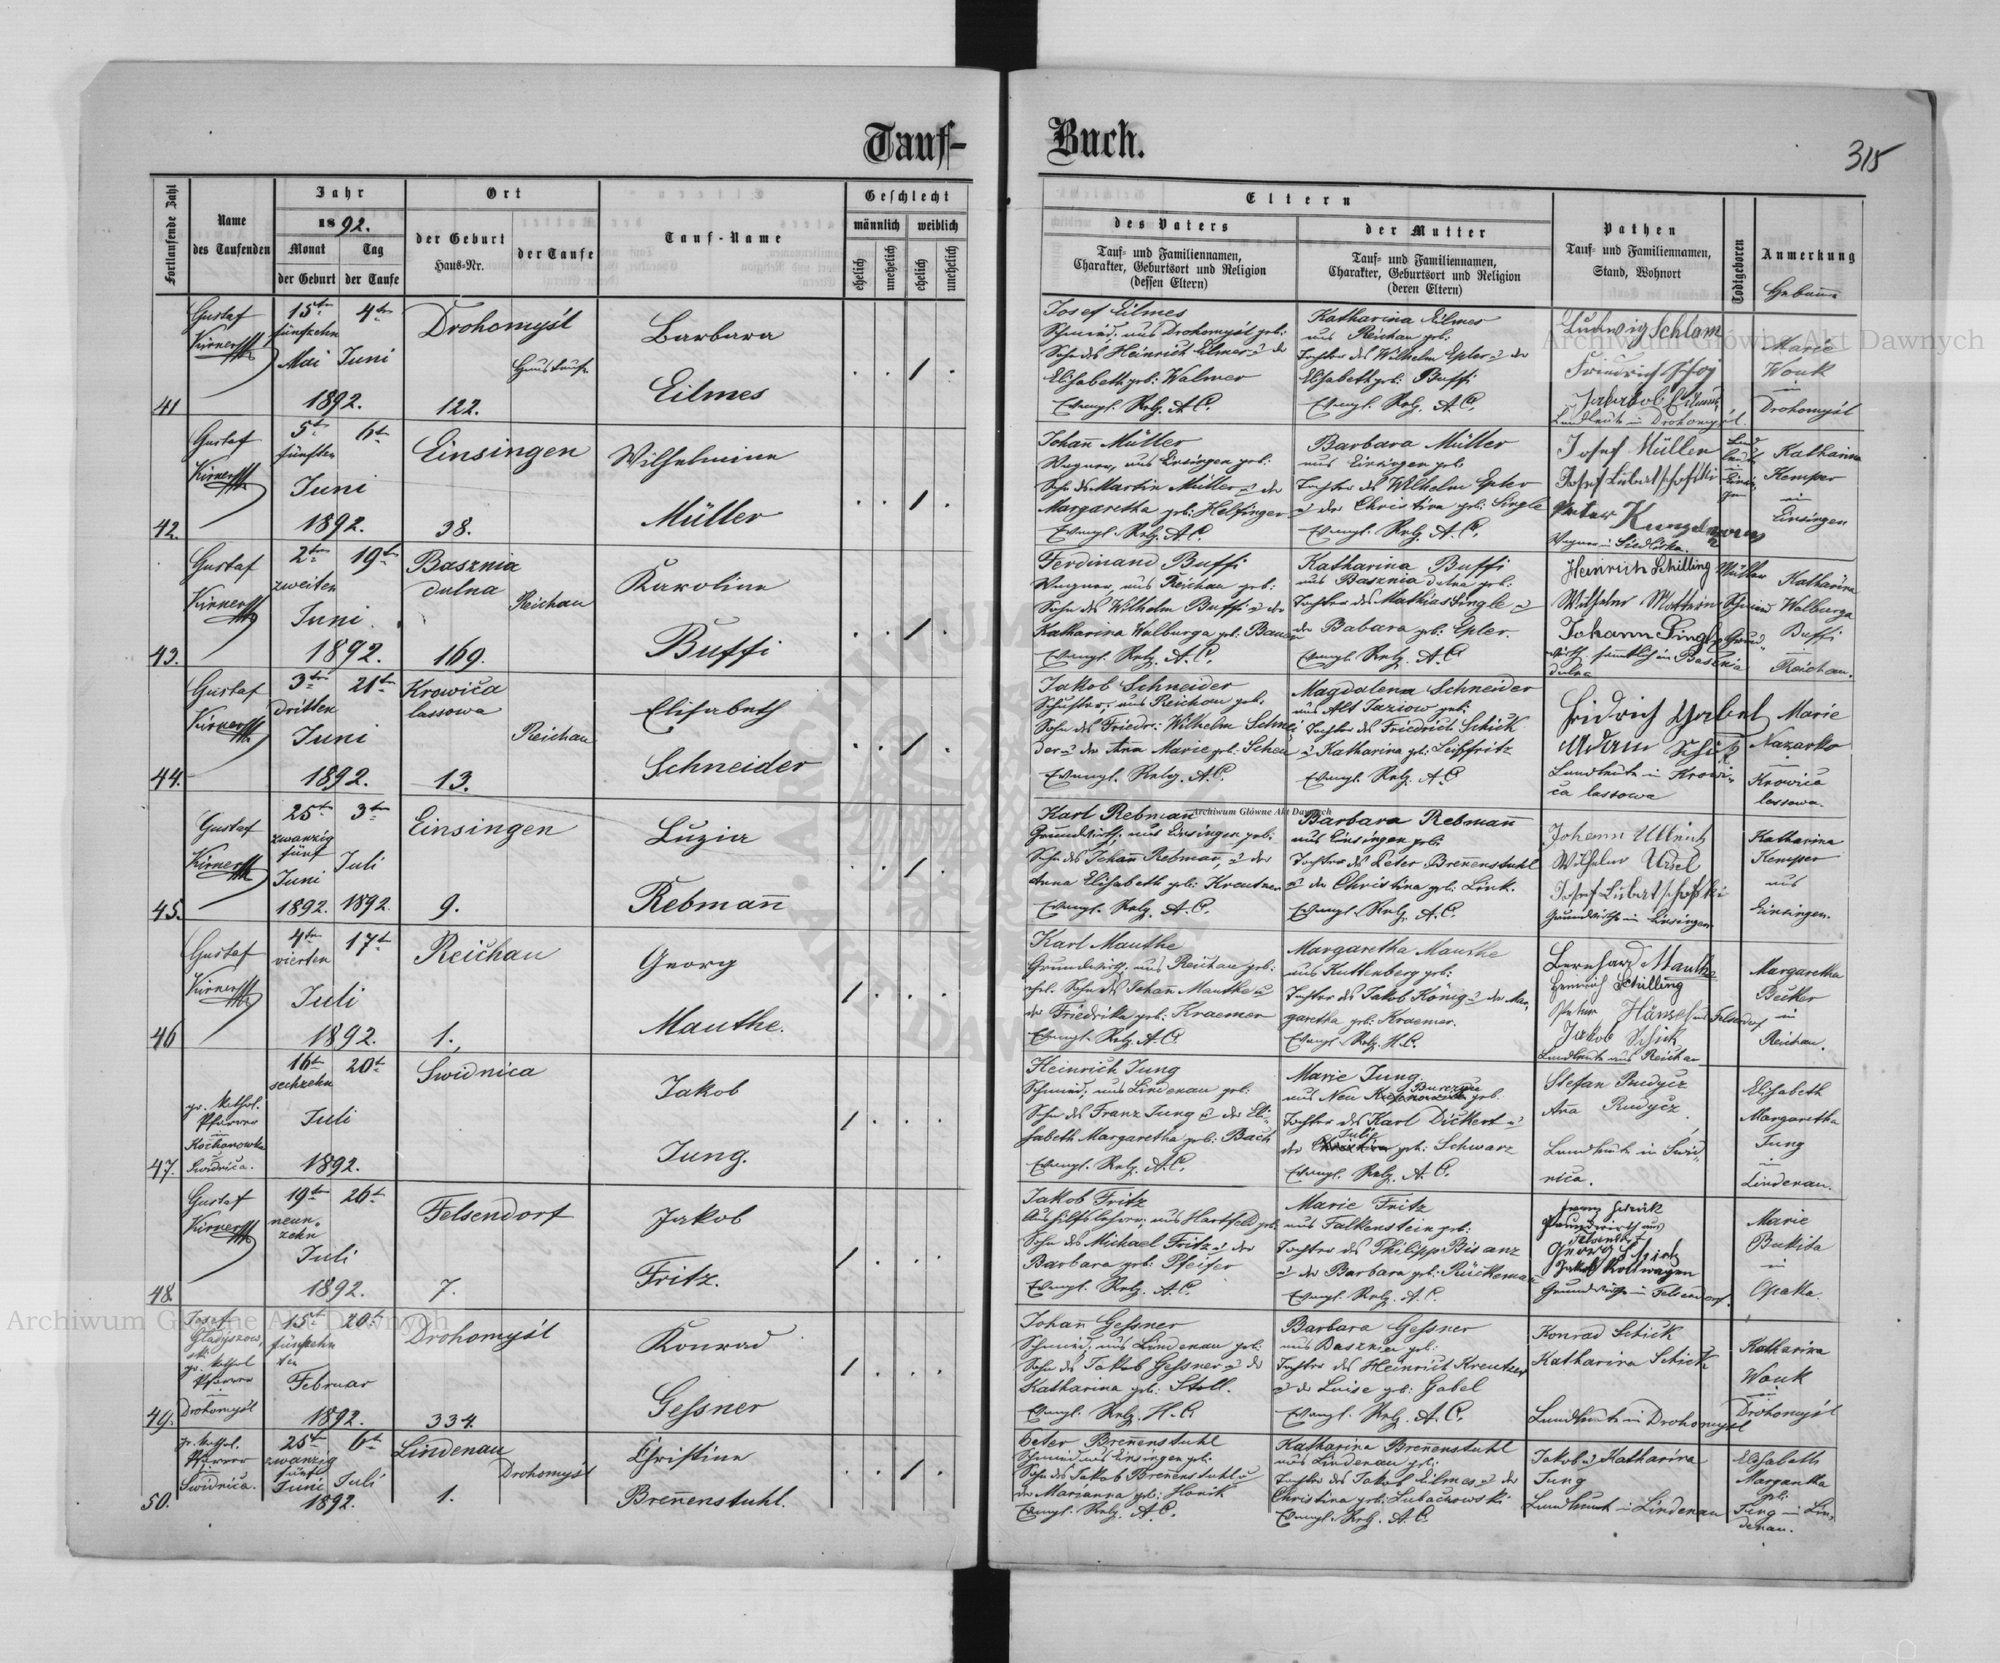 Tauf-Buch.
315
Fortlaufende Zahl
Name des Taufenden
Jahr
1892.
Monat der Geburt
Tag der Taufe
Ort
der Geburt
Haus-Nr.
der Taufe
Tauf-Name
Geschlecht
männlich
weiblich
ehelich
unehelich
ehelich
unehelich
Eltern
des Vaters
Tauf- und Familiennamen,
Charakter, Geburtsort und Religion
(dessen Eltern)
der Mutter
Tauf- und Familiennamen,
Charakter, Geburtsort und Religion
(deren Eltern)
Pathen
Tauf- und Familiennamen,
Stand, Wohnort
Todtgeboren
Anmerkung
41
Gustaf
15ten
fünfzehn
Mai
1892.
4ten
Juni
Drohomyśl
122.
Barbara
Eilmes
Josef Eilmes
Schmied, aus Drohomyśl geb:
Sohn des Heinrich Eilmes u. der
Elisabeth geb: Walmer
Evangl. Relg. A.C.
Katharina Eilmes
aus Reichau geb:
Tochter des Wilhelm Epler u. der
Elisabeth geb: Buffi
Evangl. Relg. A.C.
Ludwig Schlam
Landleute in Drohomyśl.
Marie
Wouk
in
Drohomyśl
42.
Gustaf
5ten
fünften
Juni
1892.
6ten
Einsingen
38.
Wilhelmine
Müller
Johann Müller
Wagner, aus Einsingen geb:
Sohn des Martin Müller u. der
Margaretha geb: Helfinger
Evangl. Relg. A.C.
Barbara Müller
aus Einsingen geb:
Tochter des Wilhelm Epler
u. der Christina geb: Single
Evangl. Relg. A.C.
Josef Müller
Peter
Katharina
Kemper
in
Einsingen
43.
Gustaf
2ten
zweiten
Juni
1892.
19ten
Basznia
dolna
169.
Reichau
Karolina
Buffi
Ferdinand Buffi
Wagner, aus Reichau geb:
Sohn des Wilhelm Buffi u. der
Katharina Walburga geb: Bauer
Evangl. Relg. A.C.
Katharina Buffi
aus Basznia dolna geb:
Tochter des Mathias Single u.
der Babara geb: Epler.
Evangl. Relg. A.C.
Heinrich Schilling Müller
Johann Single
sämtlich in Basznia
dolna
Katharina
Walburga
Buffi
in
Reichau.
44.
Gustaf
3ten
dritten
Juni
1892.
21ten
Krowica
lassowa
13.
Reichau
Elisabeth
Schneider
Jakob Schneider
Schuster, aus Reichau geb.
Sohn des Friedr: Wilhelm Schnei
der u. der Ana Marie geb: Scheu
Evangl. Relg. A.C.
Magdalena Schneider
Tochter des Friedrich Schick
u. Katharina geb: Leibfritz
Evangl. Relg. A.C.
Fridrich Gabel
Adam Schick
Landleute in Krowi-
ca lassowa
Marie
Nazarko
in
Krowica
lassowa.
45.
Gustaf
25ten
zwanzig
fünf
Juni
1892.
3ten
Juli
1892.
Einsingen
9.
Luzia
Rebmann
Karl Rebmann
Grundwirth, aus Einsingen geb:
Sohn des Johann Rebmann u. der
Anna Elisabeth geb: Kreutner
Evangl. Relg. A.C.
Barbara Rebmann
aus Einsingen geb:
Tochter des Peter Brennenstuhl
u. der Christina geb: Link.
Evangl. Relg. A.C.
Johann Ullrich
Wilhelm Ursel
Grundwirthe in Einsingen
Katharina
Kemper
aus
Einsingen.
46
Gustaf
4ten
vierten
Juli
1892.
17ten
Reichau
1.
Georg
Mauthe.
Karl Mauthe
Grundwirth, aus Reichau geb:
ehel. Sohn des Johann Mauthe u.
der Friedrika geb: Kraemer
Evangl. Relg. A.C.
Margaretha Mauthe
aus Kuttenberg geb:
Tochter des Jakob König u. der Mar,
garetha geb: Kraemer.
Evangl. Relg. H.C.
Bernhard Mauthe
Heinrich Schilling
Peter Hänsel aus Felsendorf
Jakob Schick
Landleute aus Reichau
Margaretha
Becker
in
Reichau.
47.
gr. kathol.
Pfarrer
in
Kochanowka
Swidnica.
16ten
sechzehn
Juli
1892.
20ten
Swidnica
Jakob
Jung.
Heinrich Jung
Schmied, aus Lindenau geb:
Sohn des Franz Jung u. der Eli-
sabeth Margaretha geb: Bach
Evangl. Relg. A.C.
Marie Jung
Tochter des Karl Dickert u.
der Julie geb: Schwarz
Evangl. Relg. A.C.
Stefan Rudycz
Ana Rudycz
Landleute in Swid-
nica.
Elisabeth
Margaretha
Jung
in
Lindenau.
48.
Gustaf
19ten
neun-
zehn
Juli
1892.
26ten
Felsendorf
7.
Jakob
Fritz.
Jakob Fritz
Aushilfslehrer, aus Hartfeld geb:
Sohn des Michael Fritz u. der
Barbara geb: Pfeifer
Evangl. Relg. A.C.
Marie Fritz
aus Falkenstein geb:
Tochter des Philipp Bisanz
u. der Barbara geb: Rückeman
Evangl. Relg. A.C.
Jakob Kottwagen
Grundwirthe in Felsendorf.
Marie
in
Opaka.
49.
Josef
gr. kathol
Pfarrer
in
Drohomyśl
15ten
fünfzehn
ten
Februar
1892.
20ten
Drohomyśl
334.
Konrad
Gessner
Johann Gessner
Schmied, aus Lindenau geb:
Sohn des Jakob Gessner u. der
Katharina geb: Stoll.
Evangl. Relg. H.C.
Barbara Gessner
aus Basznia geb:
Tochter des Heinrich Kreutzer
u. der Luise geb: Gabel
Evangl. Relg. A.C.
Konrad Schick
Katharina Schick
Landleute in Drohomyśl
Katharina
Wouk
in
Drohomyśl
50.
gr. kathol.
Pfarrer
in
Swidnica.
25ten
zwanzig
fünf
Juni
1892.
6ten
Juli
Lindenau
1.
Drohomyśl
Christina
Brennenstuhl.
Peter Brennenstuhl
Schmied aus Einsingen geb:
Sohn des Jakob Brennenstuhl u.
der Marianna geb: Honik
Evangl. Relg. A.C.
Katharina Brennenstuhl
aus Lindenau geb:
Tochter des Jakob Eilmes u. der
Christina geb: Lubaczowski
Evangl. Relg. A.C.
Jakob u. Katharina
Jung
Landleute in Lindenau
Elisabeth
Margaretha
geb:
Jung in Lin,
denau.
Archiwum Główne Akt Dawnych
Archiwum Główne Akt Dawnych
Archiwum Główne Akt Dawnych